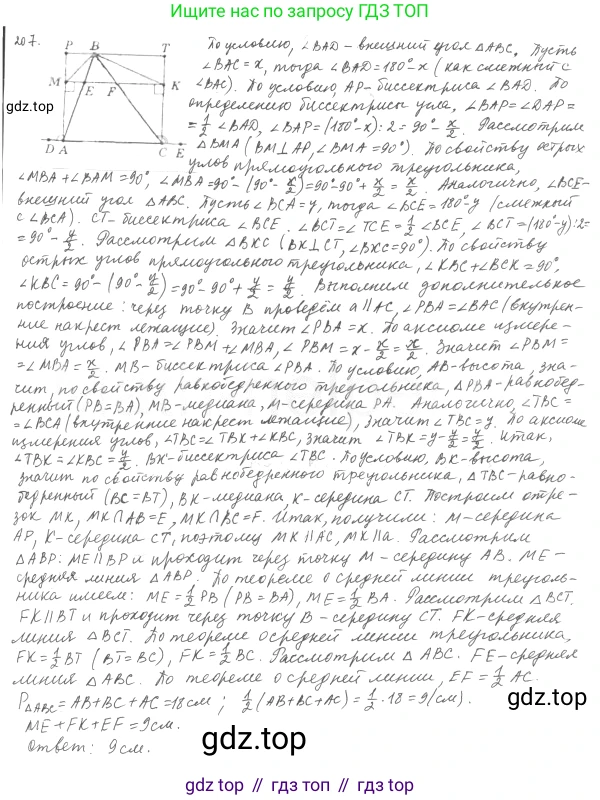 Ищите нас по запросу ГДЗ ТОП
207.
P B T
M E F K
D A C E
По условию, ∠BAD – внешний угол △ABC. Пусть
∠BAC = x, тогда ∠BAD = 180° - x (как смежный с
∠BAC). По условию, AP – биссектриса ∠BAD. По
определению биссектрисы угла, ∠BAP = ∠DAP =
= 1/2 ∠BAD, ∠BAP = (180° - x) : 2 = 90° - x/2. Рассмотрим
△BMA (BM⊥AP, ∠BMA = 90°). По свойству острых
углов прямоугольного треугольника,
∠MBA + ∠BAM = 90°, ∠MBA = 90° - (90° - x/2) = 90° - 90° + x/2 = x/2. Аналогично, ∠BCE –
внешний угол △ABC. Пусть ∠BCA = y, тогда ∠BCE = 180° - y (смежный
с ∠BCA). CT – биссектриса ∠BCE. ∠BCT = ∠TCE = 1/2 ∠BCE, ∠BCT = (180° - y) : 2 =
= 90° - y/2. Рассмотрим △BKC (BK⊥CT, ∠BKC = 90°). По свойству
острых углов прямоугольного треугольника, ∠KBC + ∠BCK = 90°,
∠KBC = 90° - (90° - y/2) = 90° - 90° + y/2 = y/2. Выполним дополнительное
построение: через точку B проведём a∥AC, ∠PBA = ∠BAC (внутрен-
ние накрест лежащие). Значит ∠PBA = x. По аксиоме измере-
ния углов, ∠PBA = ∠PBM + ∠MBA, ∠PBM = x - x/2 = x/2. Значит ∠PBM =
= ∠MBA = x/2. MB – биссектриса ∠PBA. По условию, AB – высота, зна-
чит, по свойству равнобедренного треугольника, △PBA – равнобед-
ренный (PB = BA), MB – медиана, M – середина PA. Аналогично, ∠TBC =
= ∠BCA (внутренние накрест лежащие), значит ∠TBC = y. По аксиоме
измерения углов, ∠TBC = ∠TBK + ∠KBC, значит ∠TBK = y - y/2 = y/2. Итак,
∠TBK = ∠KBC = y/2. BK – биссектриса ∠TBC. По условию, BK – высота,
значит по свойству равнобедренного треугольника, △TBC – равно-
бедренный (BC = BT), BK – медиана, K – середина CT. Построим отре-
зок MK, MK∩AB = E, MK∩BC = F. Итак, получили: M – середина
AP, K – середина CT, поэтому MK∥AC, MK∥a. Рассмотрим
△ABP: ME∥BP и проходит через точку M – середину AB. ME –
средняя линия △ABP. По теореме о средней линии треуголь-
ника имеем: ME = 1/2 PB (PB = BA), ME = 1/2 BA. Рассмотрим △BCT.
FK∥BT и проходит через точку B – середину CT. FK – средняя
линия △BCT. По теореме о средней линии треугольника,
FK = 1/2 BT (BT = BC), FK = 1/2 BC. Рассмотрим △ABC. FE – средняя
линия △ABC. По теореме о средней линии, EF = 1/2 AC.
P△ABC = AB + BC + AC = 18 см; 1/2 (AB + BC + AC) = 1/2 · 18 = 9 (см).
ME + FK + EF = 9 см.
Ответ: 9 см.
gdz.top // гдз.top // gdz.top // гдз.top